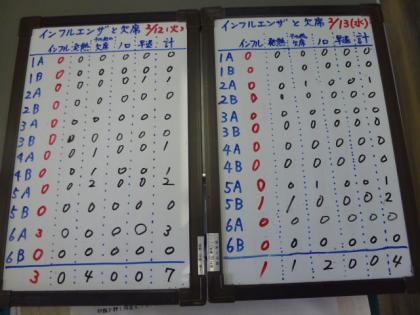 インフルエンザと欠席 2/12(火)
インフル 発熱 その他の欠席 ノロ 早退 計
1A 0 0 0 0 0 0
1B 0 0 0 0 0 0
2A 0 0 1 0 0 1
2B 0 0 0 0 0 0
3A 0 0 0 0 0 0
3B 0 0 0 0 0 0
4A 0 0 1 0 0 1
4B 0 0 0 0 0
5A 0 0 2 0 0 2
5B 0 0 0 0 0 0
6A 3 0 0 0 0 3
6B 0 0 0 0 0 0
3 0 4 0 0 7
インフルエンザと欠席 2/13(水)
インフル 発熱 その他の欠席 ノロ 早退 計
1A 0 0 0 0 0 0
1B 0 0 0 0 0 0
2A 0 0 1 0 0 1
2B 0 0 0 0 0 0
3A 0 0 0 0 0 0
3B 0 0 0 0 0 0
4A 0 0 0 0 0 0
4B 0 0 0 0 0 0
5A 0 0 1 0 0 1
5B 1 1 0 0 0 2
6A 0 0 0 0 0 0
6B 0 0 0 0 0 0
1 1 2 0 0 4